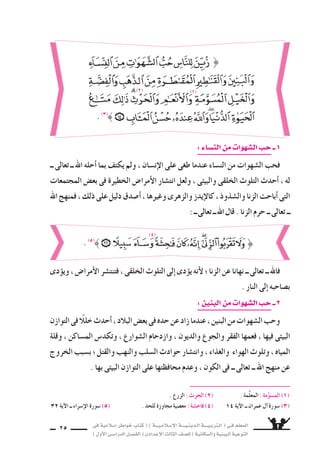 ﴿ زُيِّنَ لِلنَّاسِ حُبُّ الشَّهَوَاتِ مِنَ النِّسَاءِ
وَالْبَنِينَ وَالْقَنَاطِيرِ الْمُقَنْطَرَةِ مِنَ الذَّهَبِ وَالْفِضَّةِ
وَالْخَيْلِ الْمُسَوَّمَةِ(١) وَالْأَنْعَامِ وَالْحَرْثِ(٢) ذَلِكَ مَتَاعُ
الْحَيَاةِ الدُّنْيَا وَاللَّهُ عِنْدَهُ حُسْنُ الْمَآبِ ١٤ ﴾(٣) .
١ - حب الشهوات من النساء :
فحب الشهوات من النساء عندما طغى على الإنسان ، ولم يكتف بما أحله الله ـ تعالى ـ
له ، أحدث التلوث الخلقى والبيئى ، ولعل انتشار الأمراض الخطيرة فى بعض المجتمعات
التى أباحت الزنا والشذوذ ، كالإيدز والزهرى وغيرها ، أصدق دليل على ذلك ، فمنهج الله
ـ تعالى ـ حرم الزنا . قال الله ـ تعالى ـ :
﴿ وَلَا تَقْرَبُوا الزِّنَا إِنَّهُ كَانَ فَاحِشَةً(٤) وَسَاءَ سَبِيلًا ٣٢ ﴾(٥) .
فالله ـ تعالى ـ نهانا عن الزنا ؛ لأنه يؤدى إلى التلوث الخلقى ، فتنتشر الأمراض ، ويؤدى
بصاحبه إلى النار .
٢ - حب الشهوات من البنين :
وحب الشهوات من البنين ، عندما زاد عن حده فى بعض البلاد ، أحدث خللًا فى التوازن
البيئى فيها ، فعمها الفقر والجوع والديون ، وازدحام الشوارع ، وتكدس المساكن ، وقلة
المياه ، وتلوث الهواء والغذاء ، وانتشار حوادث السلب والنهب والقتل ؛ بسبب الخروج
عن منهج الله ـ تعالى ـ فى الكون ، وعدم محافظتها على التوازن البيئى بها .
(١) المسوَّمة : المعلَّمة .
(٢) الحرث : الزرع .
(٣) سورة آل عمران ـ الآية ١٤
(٤) فاحشة : معصية مجاوزة للحد .
(٥) سورة الإسراء ـ الآية ٣٢
المعلم فى ( التربيـة الدينيـة الإسلاميـة ) ( كتاب خواطر إسلامية فى
التوعية البيئية والسكانية ) للصف الثالث الإعدادى ( الفصل الدراسى الأول )
٢٥